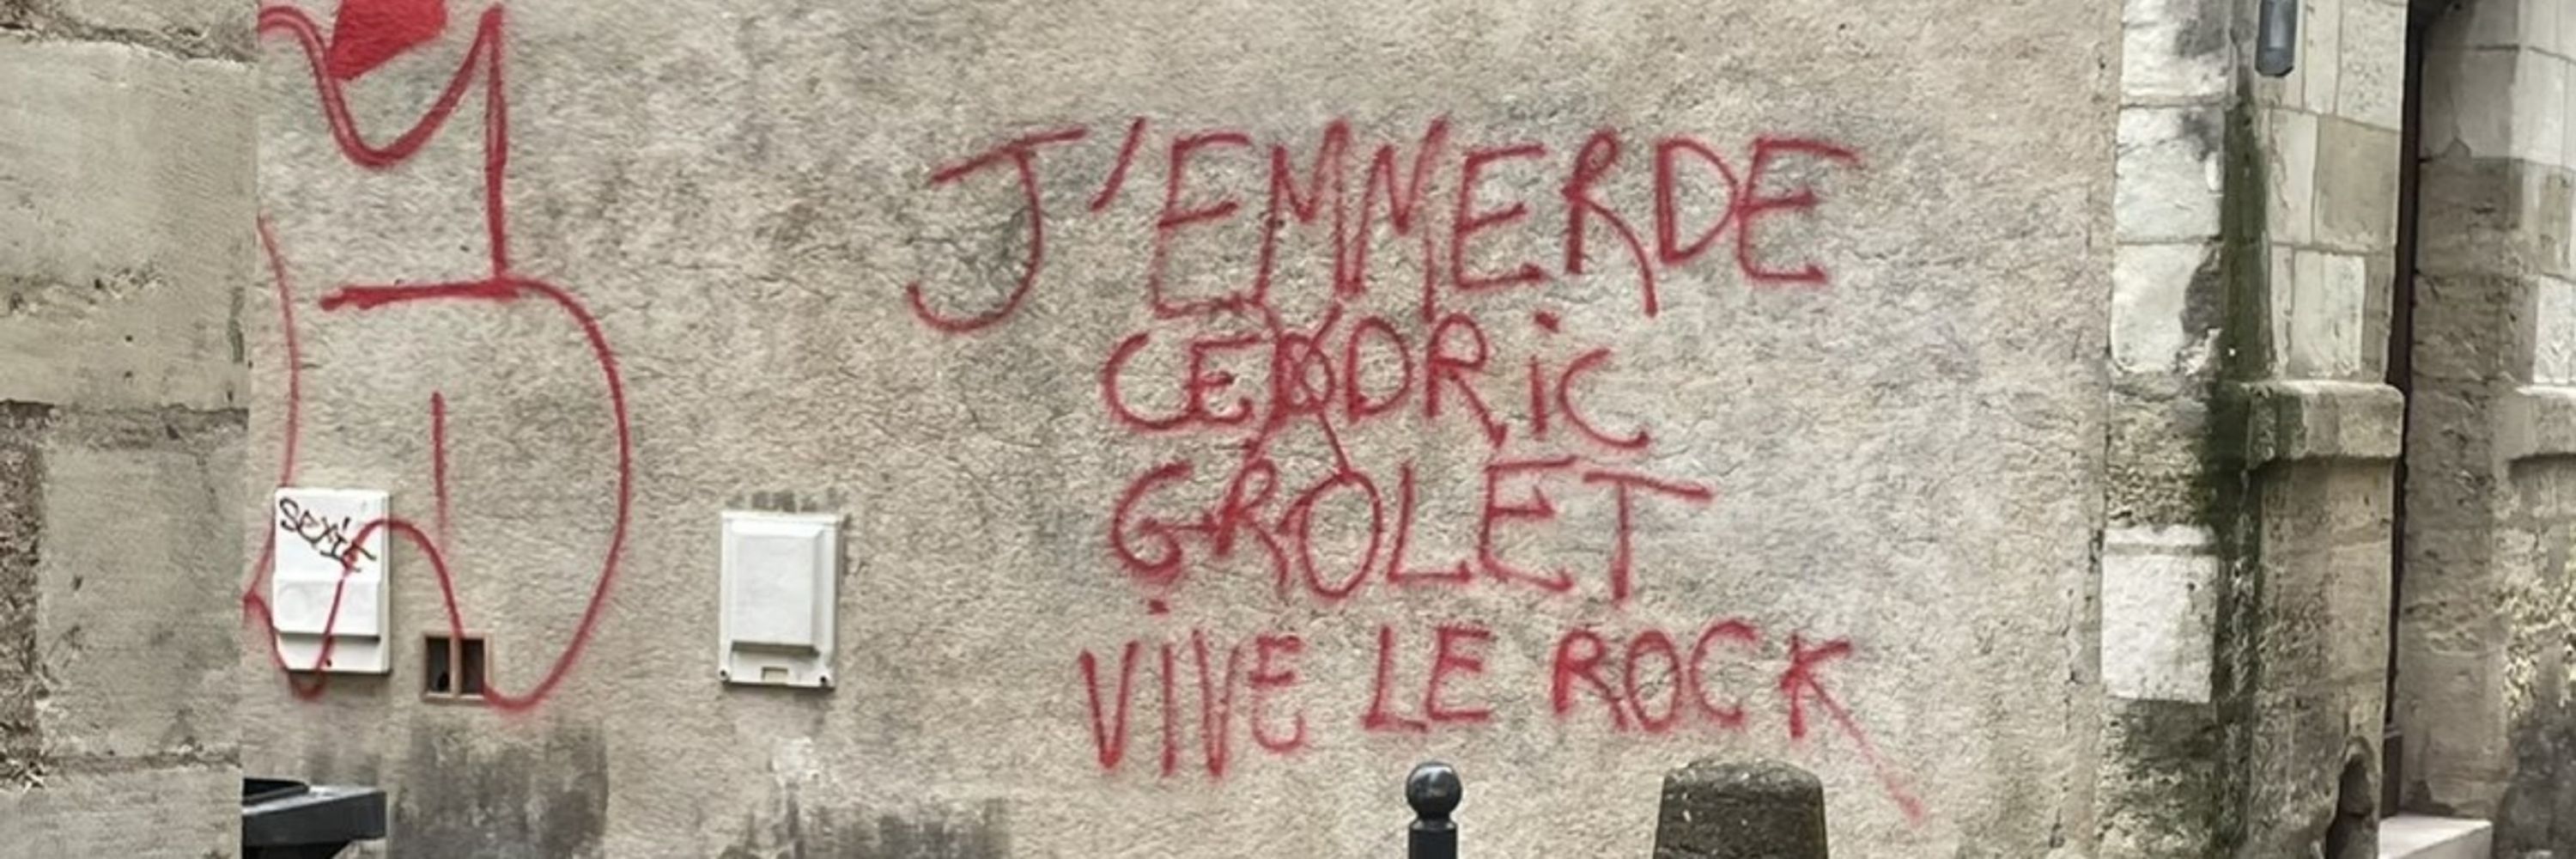 J'EMMERDE
CEDRIC
GROLET
VIVE LE ROCK
SEXIE